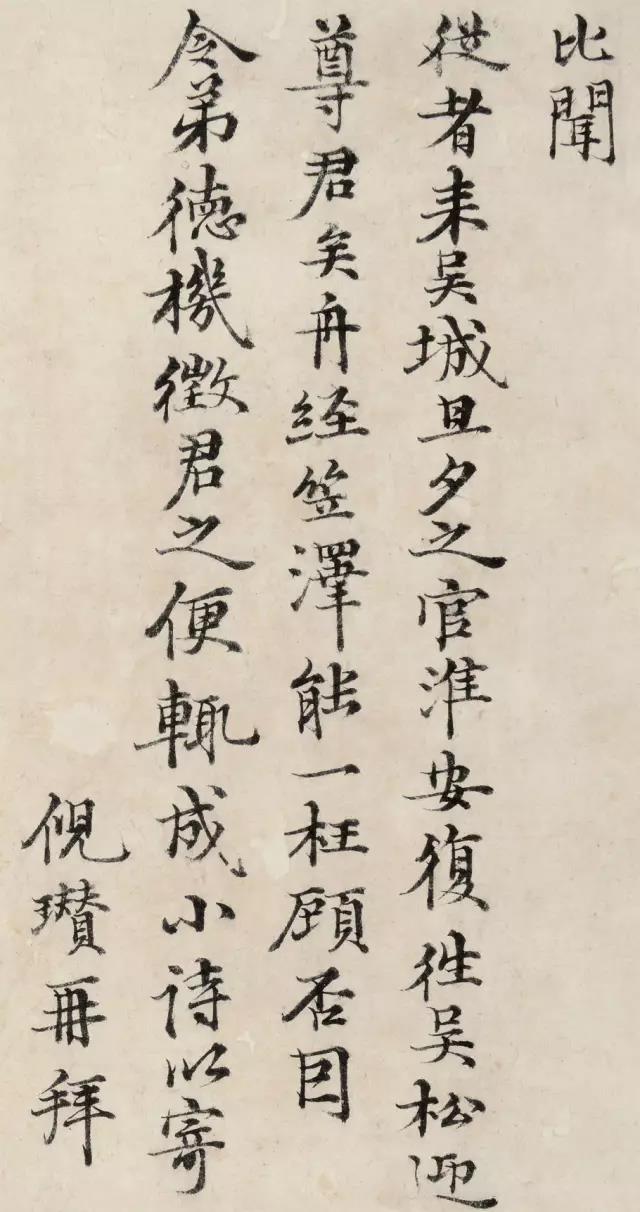 比聞
從者来吴城旦夕之官淮安復往吴松迎
尊君矣舟經笠澤能一枉顾否因
令弟德機徵君之便輒成小詩以寄
倪瓚再拜